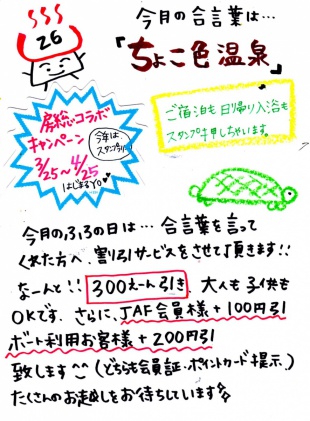 26
今月の合言葉は…
「ちょこ色温泉」
房総コラボ
キャンペーン
今年は、
スタンプラリー
3/25〜4/25
はじまるYO♥
ご宿泊も日帰り入浴も
スタンプ押しちゃいます。
今月のふろの日は… 合言葉を言って
くれた方へ、割引サービスをさせて頂きます!!
なーんと!! 300えーん引き、大人も子供も
OKです。さらに、JAF会員様+100円引
ボート利用お客様+200円引
致します^^(どちらも会員証、ポイントカード提示。)
たくさんのお越しをお待ちしています